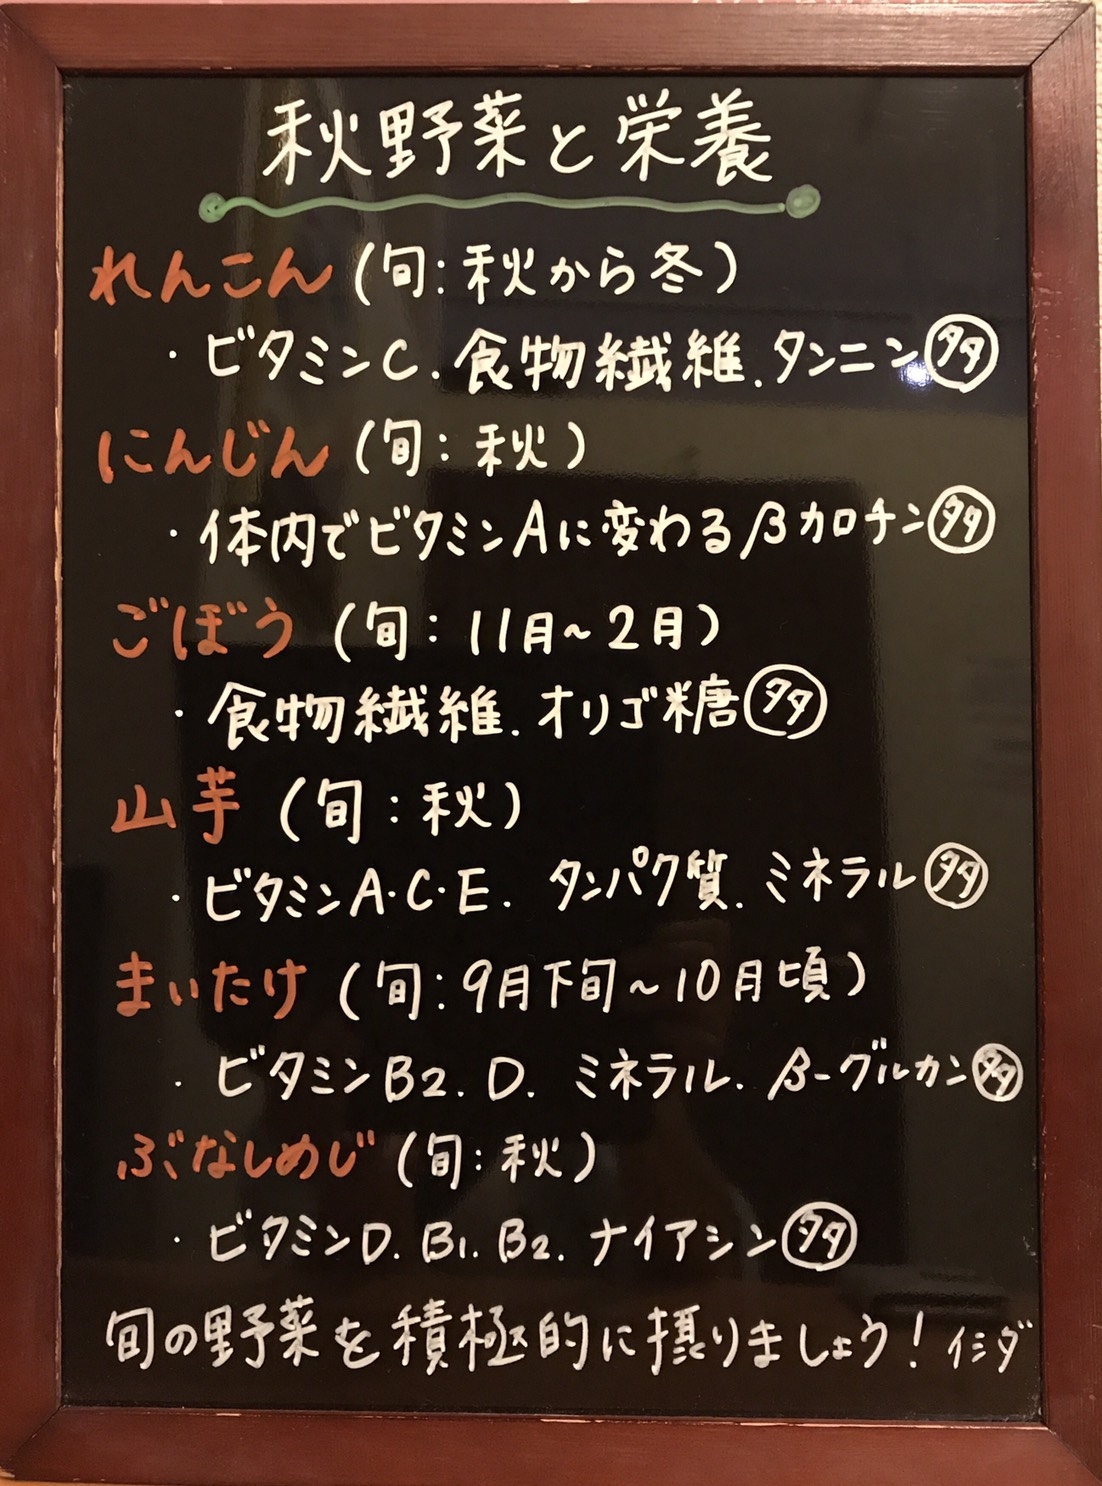 秋野菜と栄養
れんこん(旬:秋から冬)
・ビタミンC.食物繊維.タンニン㊿多
にんじん(旬:秋)
・体内でビタミンAに変わるβカロチン多
ごぼう(旬:11月~2月)
・食物繊維.オリゴ糖多
山芋(旬:秋)
・ビタミンA・C・E.タンパク質.ミネラル多
まいたけ(旬:9月下旬~10月頃)
・ビタミンB2.D.ミネラル.β-グルカン多
ぶなしめじ(旬:秋)
・ビタミンD.B1.B2.ナイアシン多
旬の野菜を積極的に摂りましょう!イシダ